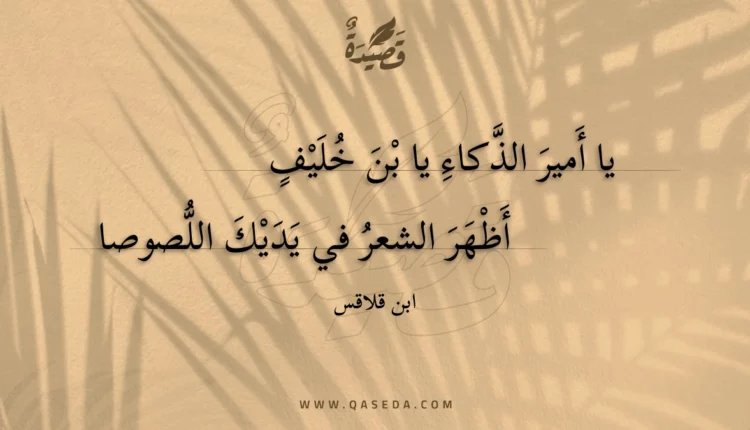 قَصِيْدَةٌ
يا أَميرَ الذَّكاءِ يا بْنَ خُلَيْفٍ
أَظْهَرَ الشعرُ في يَدَيْكَ اللُّصوصا
ابن قلاقس
WWW.QASEDA.COM